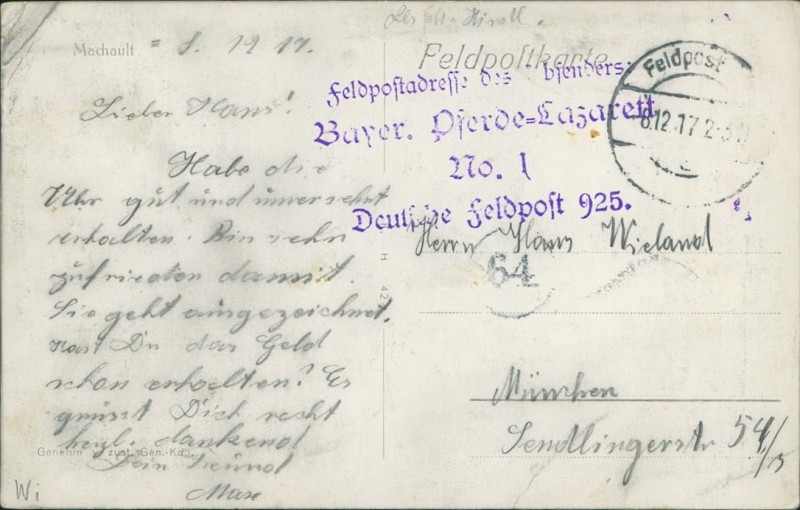 Machault
Feldpostkarte
8. 1917.
Lieber Hans!
Habe die
Uhr gut und unversehrt
erhalten. Bin sehr
zufrieden damit.
Sie geht ausgezeichnet.
Hast Du das Geld
schon erhalten? Es
grüsst Dich recht
herzl. dankend
Dein Freund
Max
Genehm. zust. Gen.-Kdo.
Wi
H 42
Feldpostadresse des Absenders:
Bayer. Pferde=Lazarett
No. 1
Deutsche Feldpost 925.
Feldpost
8.12.17 2-3
c
Herrn Hans Wieland
64
München
Sendlingerstr 54/